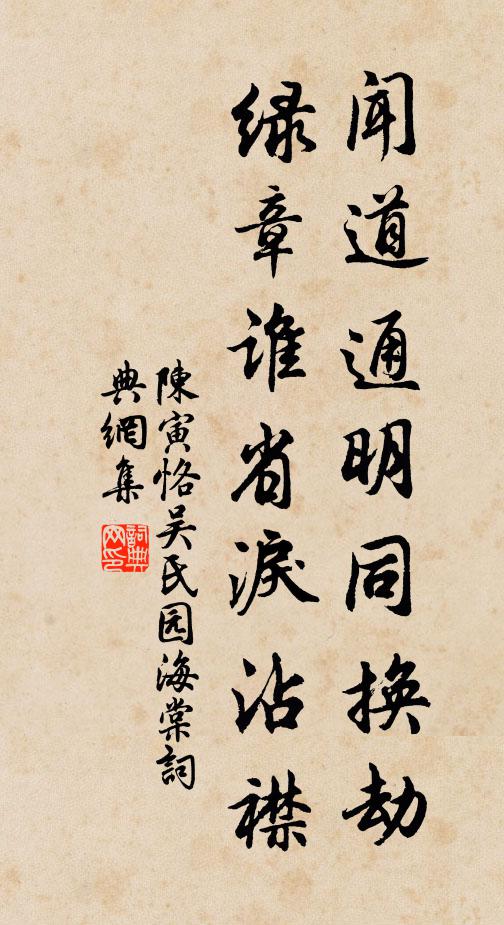 闻道通明同换劫
绿章谁省淚沾襟
陳寅恪吴氏园海棠詞
典網集
詞典网印